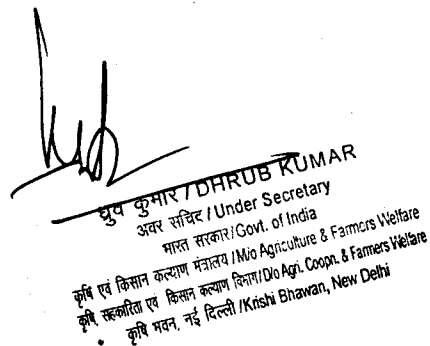 ध्रुव कुमार / DHRUB KUMAR
अवर सचिव / Under Secretary
भारत सरकार/Govt. of India
कृषि एवं किसान कल्याण मंत्रालय / M/o Agriculture & Farmers Welfare
कृषि, सहकारिता एवं किसान कल्याण विभाग/D/o Agri. Coopn. & Farmers Welfare
कृषि भवन, नई दिल्ली / Krishi Bhawan, New Delhi